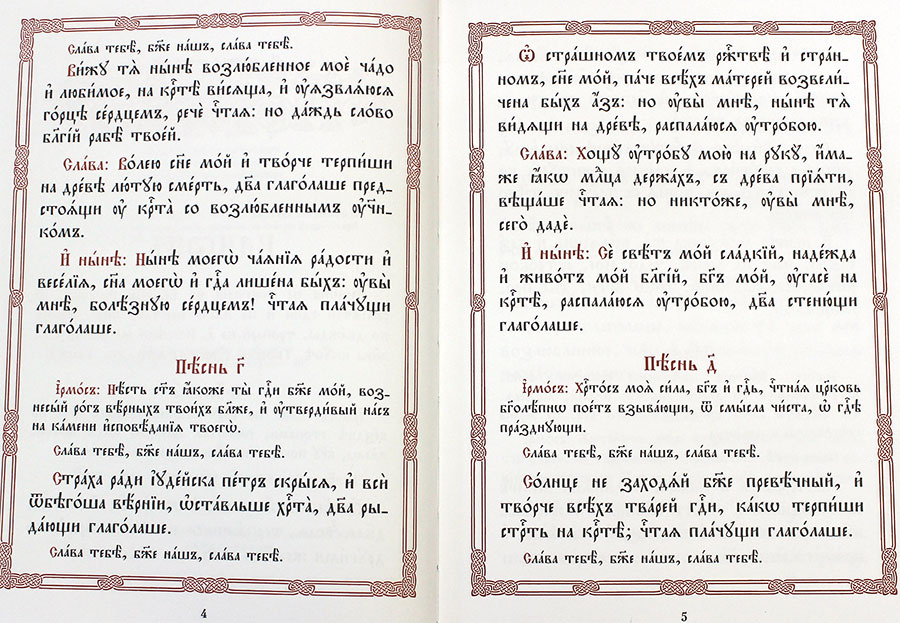 Сла́ва тебѣ̀, бж҃е на́шъ, сла́ва тебѣ̀.
Ви́жꙋ тѧ̀ ны́нѣ возлю́бленное моѐ ча́до
и҆ люби́мое, на крⷭ҇тѣ̀ ви́сѧща, и҆ оу҆ѧзвлѧ́юсѧ
го́рцѣ се́рдцемъ, речѐ чⷭ҇таѧ: но да́ждь сло́во
бл҃гі́й рабѣ̀ твое́й.
Сла́ва: Во́лею сн҃е мо́й и҆ тво́рче терпи́ши
на дре́вѣ лю́тꙋю сме́рть, дв҃а глаго́лаше пред-
стоѧ́щи оу҆ крⷭ҇та̀ со возлю́бленнымъ оу҆чн҃и-
ко́мъ.
И҆ ны́нѣ: Ны́нѣ моегѡ̀ ча́ѧніѧ ра́дости и҆
весе́ліѧ, сн҃а моегѡ̀ и҆ гдⷭ҇а лише́на бы́хъ: оу҆вы̀
мнѣ̀, болѣ́знꙋю се́рдцемъ! чⷭ҇таѧ пла́чꙋщи
глаго́лаше.
Пѣ́снь г҃
І҆рмо́съ: Нѣ́сть ст҃ъ ꙗ҆́коже ты̀ гдⷭ҇и бж҃е мо́й, воз-
несы́й ро́гъ вѣ́рныхъ твои́хъ бл҃же, и҆ оу҆тверди́вый на́съ
на ка́мени и҆сповѣ́даніѧ твоегѡ̀.
Сла́ва тебѣ̀, бж҃е на́шъ, сла́ва тебѣ̀.
Стра́ха ра́ди і҆ꙋде́йска пе́тръ скры́сѧ, и҆ всѝ
ѿбѣго́ша вѣ́рніи, ѡ҆ста́вльше хрⷭ҇та̀, дв҃а ры-
да́ющи глаго́лаше.
Сла́ва тебѣ̀, бж҃е на́шъ, сла́ва тебѣ̀.
4
Ѡ҆ стра́шномъ твое́мъ рж҇твѣ̀ и҆ стра́н-
номъ, сн҃е мо́й, па́че всѣ́хъ ма́терей возвели́-
чена бы́хъ а҆́зъ: но оу҆вы̀ мнѣ̀, ны́нѣ тѧ̀
ви́дѧщи на дре́вѣ, распала́юсѧ оу҆тро́бою.
Сла́ва: Хощꙋ̀ оу҆тро́бꙋ мою̀ на рꙋкꙋ̀, и҆́ма-
же ꙗ҆́кѡ млⷣца держа́хъ, съ дре́ва прїѧ́ти,
вѣща́ше чⷭ҇таѧ: но никто́же, оу҆вы̀ мнѣ̀,
сего̀ дадѐ.
И҆ ны́нѣ: Сѐ свѣ́тъ мо́й сла́дкїй, наде́жда
и҆ живо́тъ мо́й бл҃гі́й, бг҃ъ мо́й, оу҆гасѐ на
крⷭ҇тѣ̀, распала́юсѧ оу҆тро́бою, дв҃а стеню́щи
глаго́лаше.
Пѣ́снь д҃
І҆рмо́съ: Хрⷭ҇то́съ моѧ̀ си́ла, бг҃ъ и҆ гдⷭ҇ь, чⷭ҇тнаѧ цр҃ковь
бг҃олѣ́пнѡ пое́тъ взыва́ющи, ѿ смы́сла чи́ста, ѡ҆ гдⷭ҇ѣ
пра́зднꙋющи.
Сла́ва тебѣ̀, бж҃е на́шъ, сла́ва тебѣ̀.
Со́лнце не заходѧ́й бж҃е превѣ́чный, и҆
тво́рче всѣ́хъ тва́рей гдⷭ҇и, ка́кѡ терпи́ши
стрⷭ҇ть на крⷭ҇тѣ̀; чⷭ҇таѧ пла́чꙋщи глаго́лаше.
Сла́ва тебѣ̀, бж҃е на́шъ, сла́ва тебѣ̀.
5